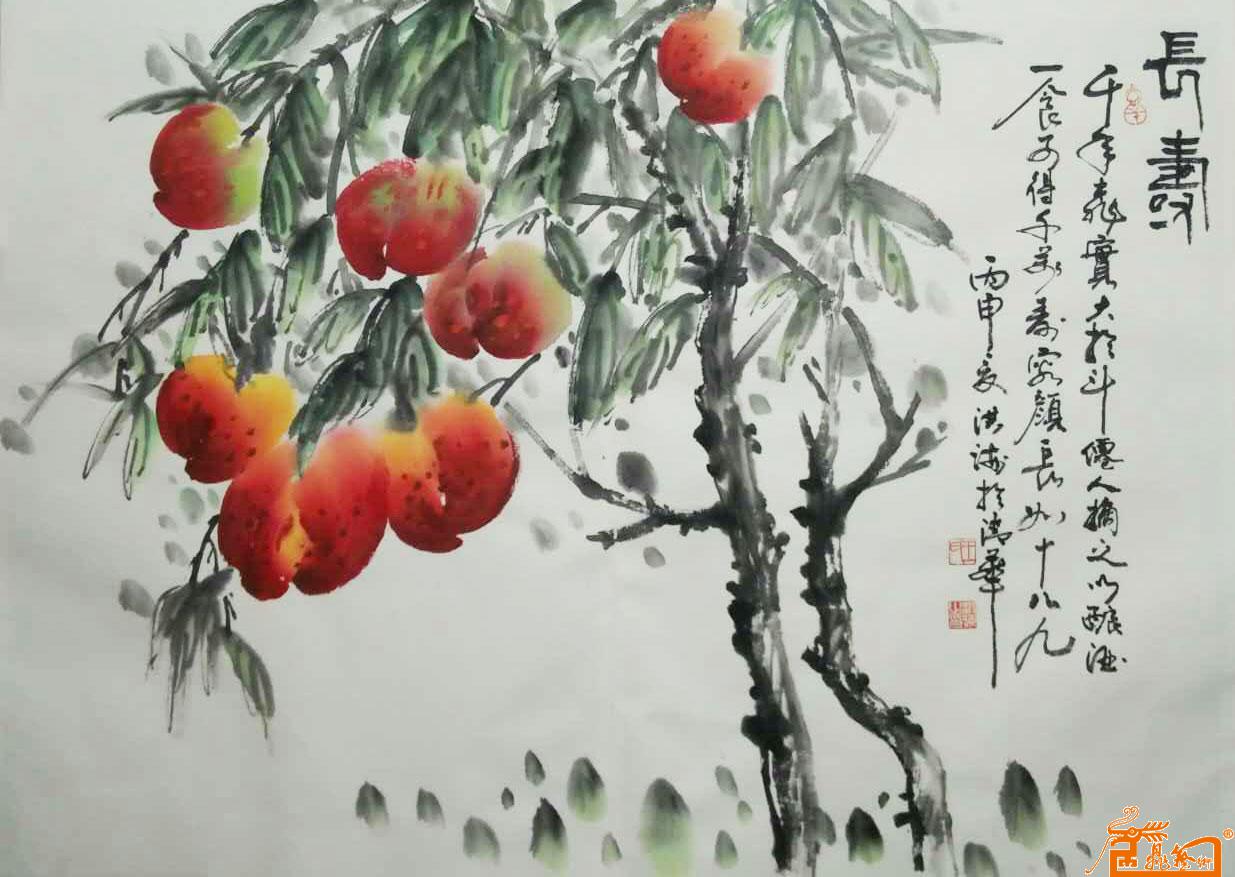 長壽
千年桃實大於斗僊人摘之以釀酒
一食可得千萬壽容顏長如十八九
丙申夏洪海於清華